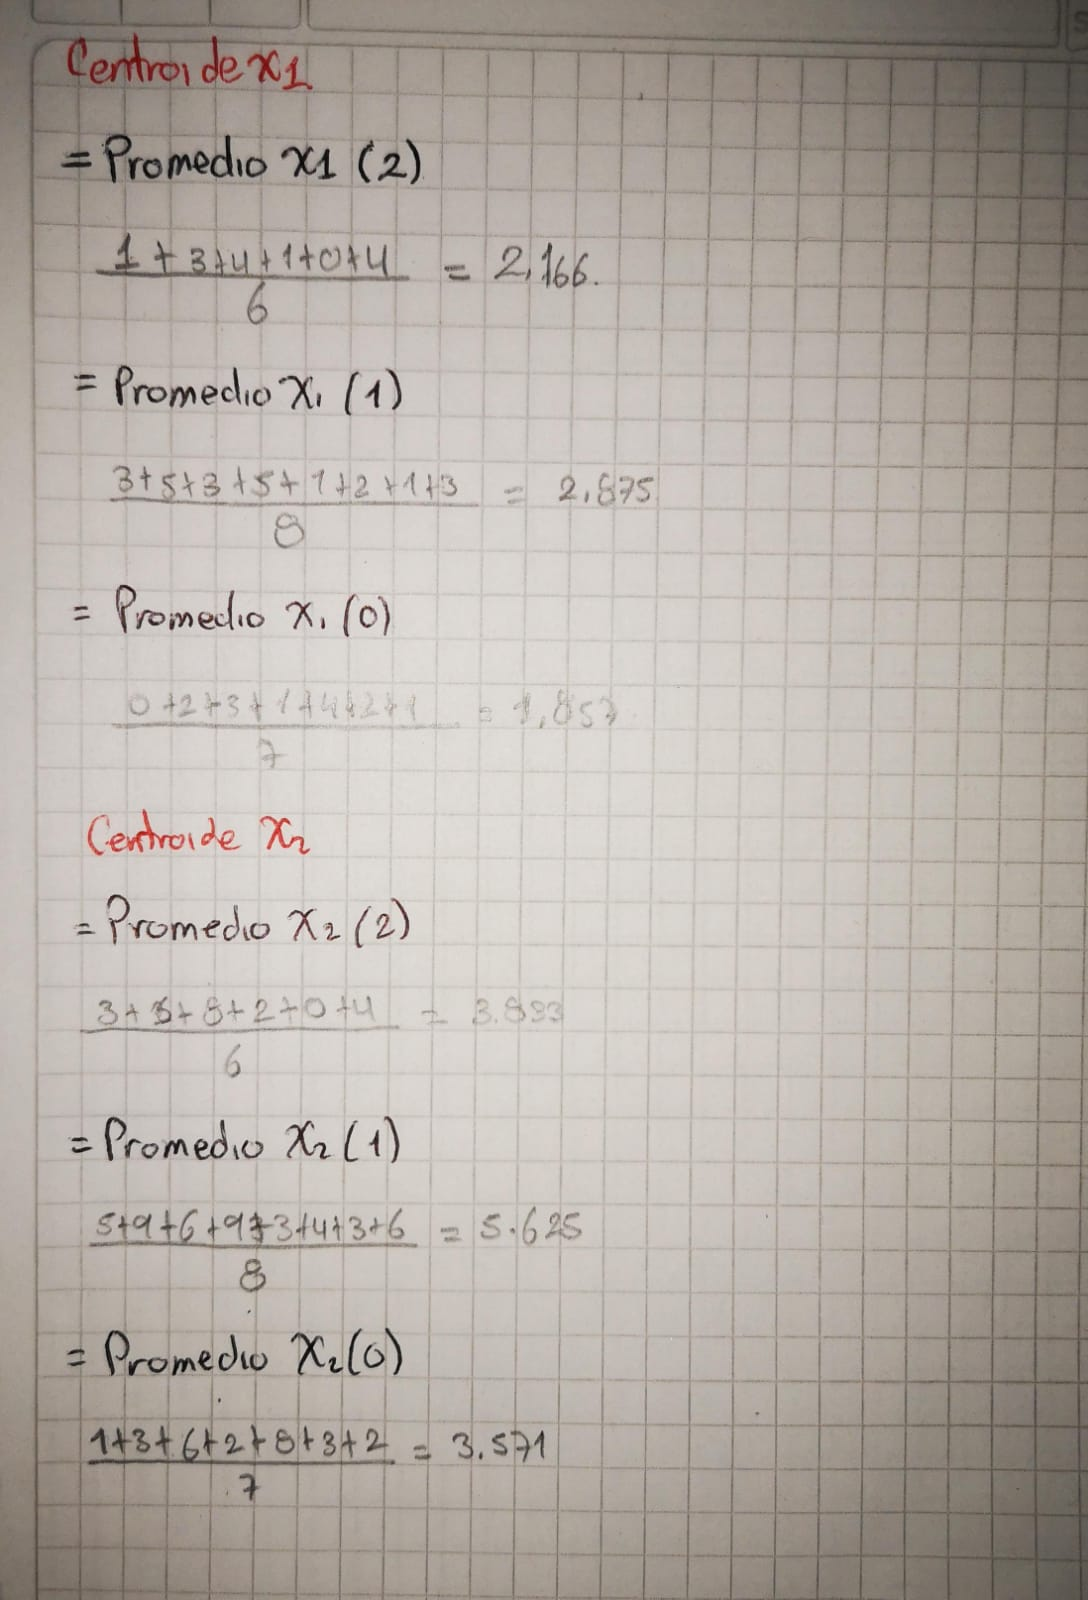 Centroide x1
= Promedio x1 (2)
1 + 3+4+1+0+4 = 2,166.
6
= Promedio X1 (1)
3+5+3+5+1+2+1+3 = 2,875
8
= Promedio x1 (0)
0+2+3+1+4+2+1 = 1,857
7
Centroide X2
= Promedio X2 (2)
3+6+8+2+0+4 = 3.833
6
= Promedio X2 (1)
5+9+6+9+3+4+3+6 = 5.625
8
= Promedio X2(0)
1+3+6+2+8+3+2 = 3.571
7